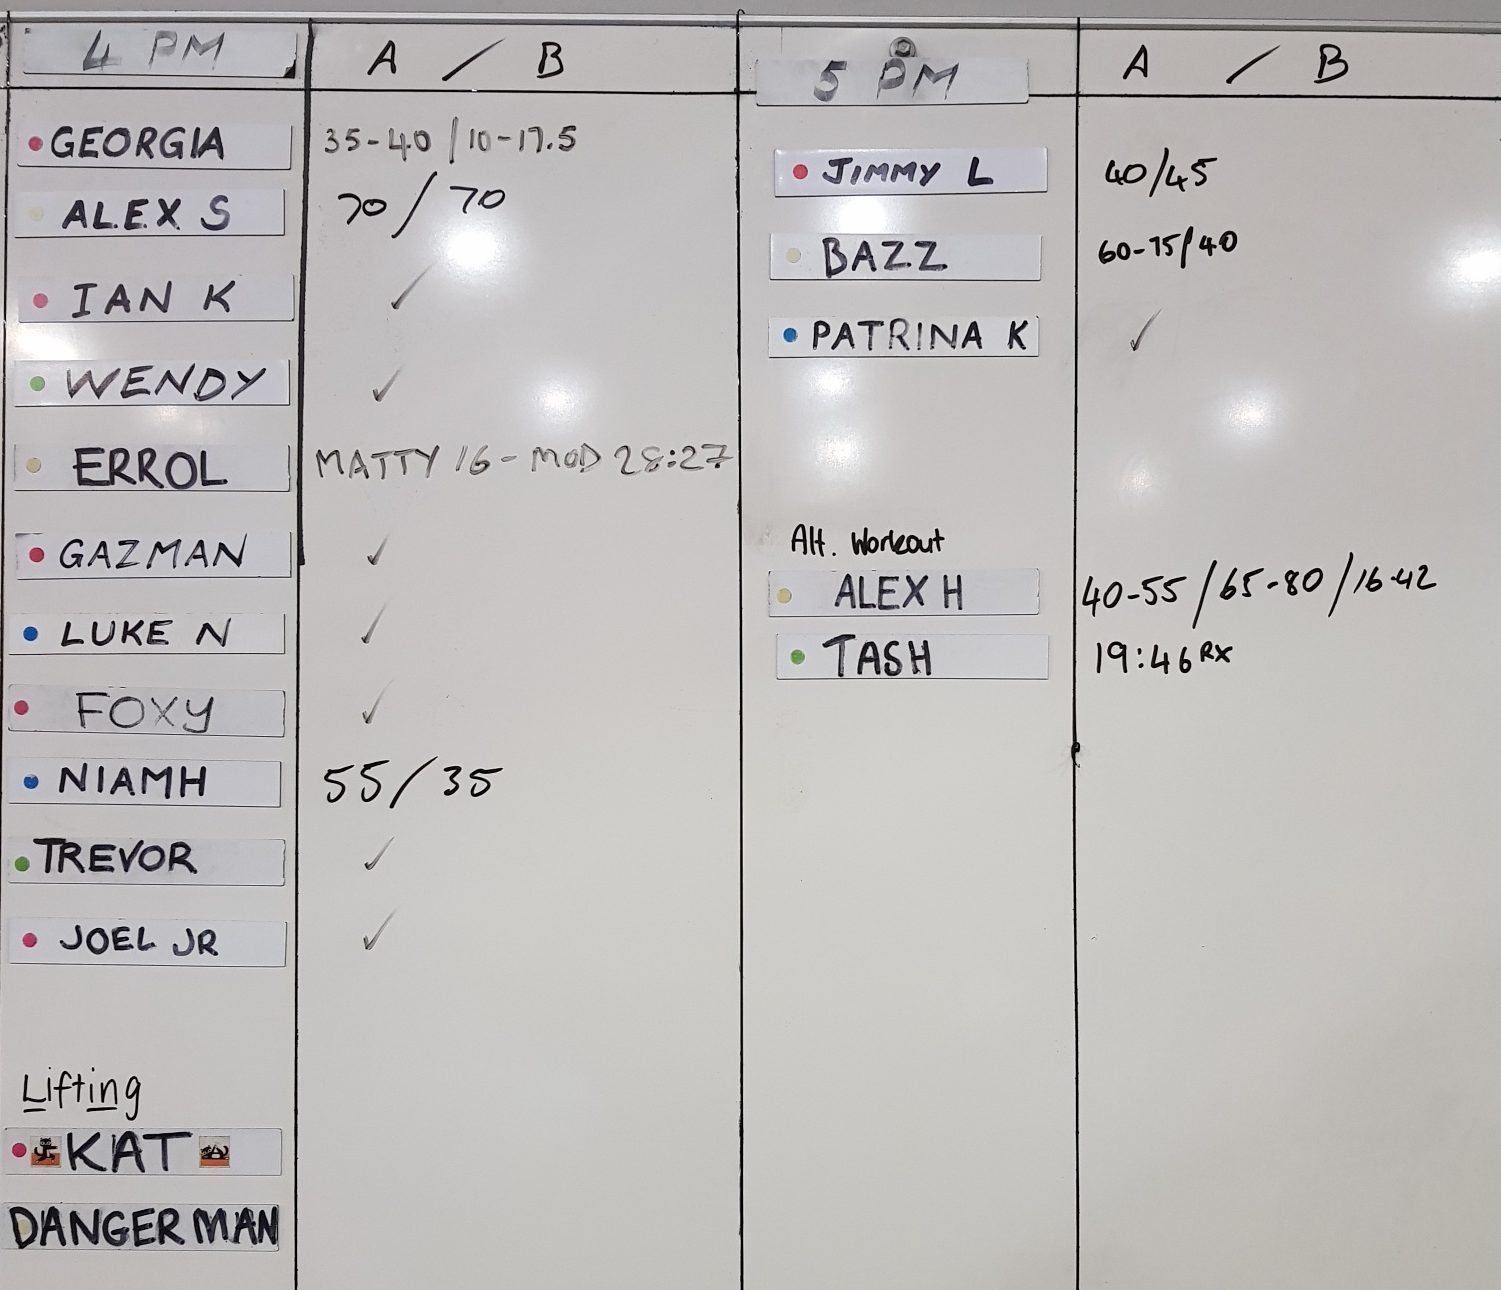 4 PM A / B
GEORGIA 35-40 / 10-17.5
ALEX S 70 / 70
IAN K ✓
WENDY ✓
ERROL MATTY 16 - MOD 28:27
GAZMAN ✓
LUKE N ✓
FOXY ✓
NIAMH 55 / 35
TREVOR ✓
JOEL JR ✓
Lifting
KAT
DANGERMAN
5 PM A / B
JIMMY L 40/45
BAZZ 60-75/40
PATRINA K ✓
Alt. Workout
ALEX H 40-55 / 65-80 / 16-42
TASH 19:46 RX